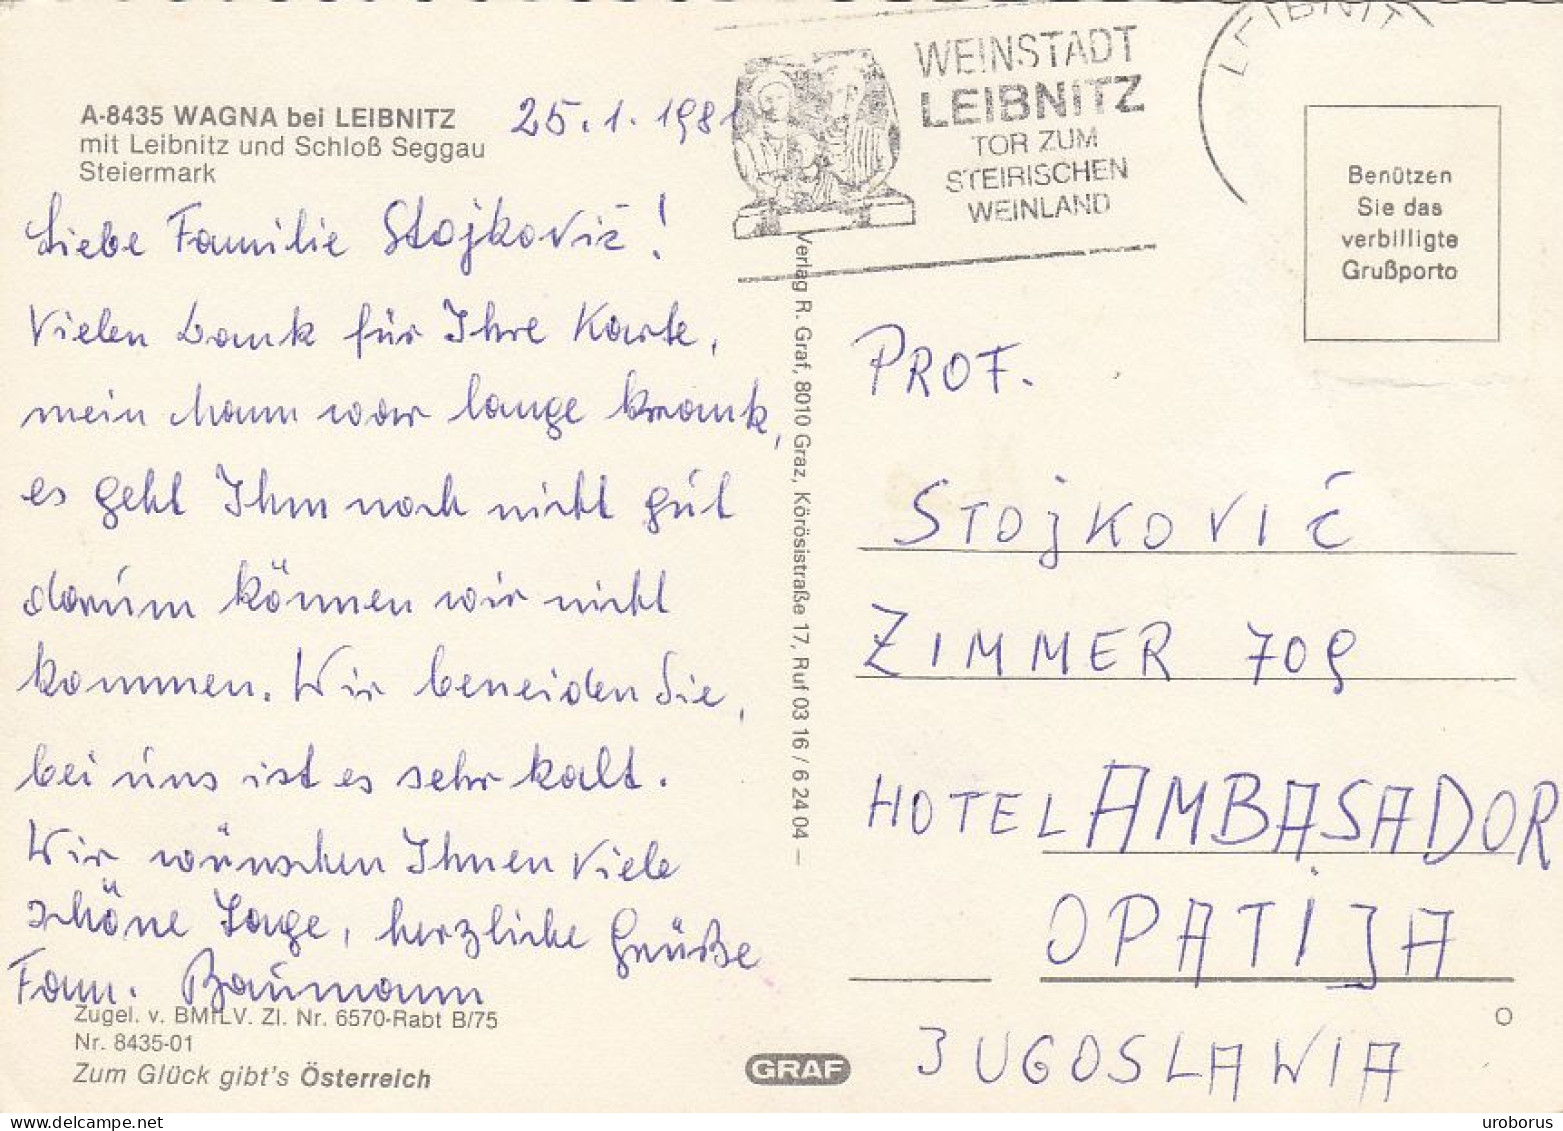 A-8435 WAGNA bei LEIBNITZ
mit Leibnitz und Schloß Seggau
Steiermark
25.1.1981
Liebe Familie Stojkovič!
Vielen Dank für Ihre Karte,
mein Mann war lange krank,
es geht Ihm noch nicht gut
darum können wir nicht
kommen. Wir beneiden Sie,
bei uns ist es sehr kalt.
Wir wünschen Ihnen viele
schöne Tage, herzliche Grüße
Fam. Baumann
Zugel. v. BMfLV. Zl. Nr. 6570-Rabt B/75
Nr. 8435-01
Zum Glück gibt's Österreich
Verlag R. Graf, 8010 Graz, Körösistraße 17, Ruf 03 16 / 6 24 04 –
GRAF
WEINSTADT
LEIBNITZ
TOR ZUM
STEIRISCHEN
WEINLAND
LEIBNITZ
Benützen
Sie das
verbilligte
Grußporto
PROF.
STOJKOVIĆ
ZIMMER 709
HOTEL AMBASADOR
OPATIJA
JUGOSLAWIA
uroborus